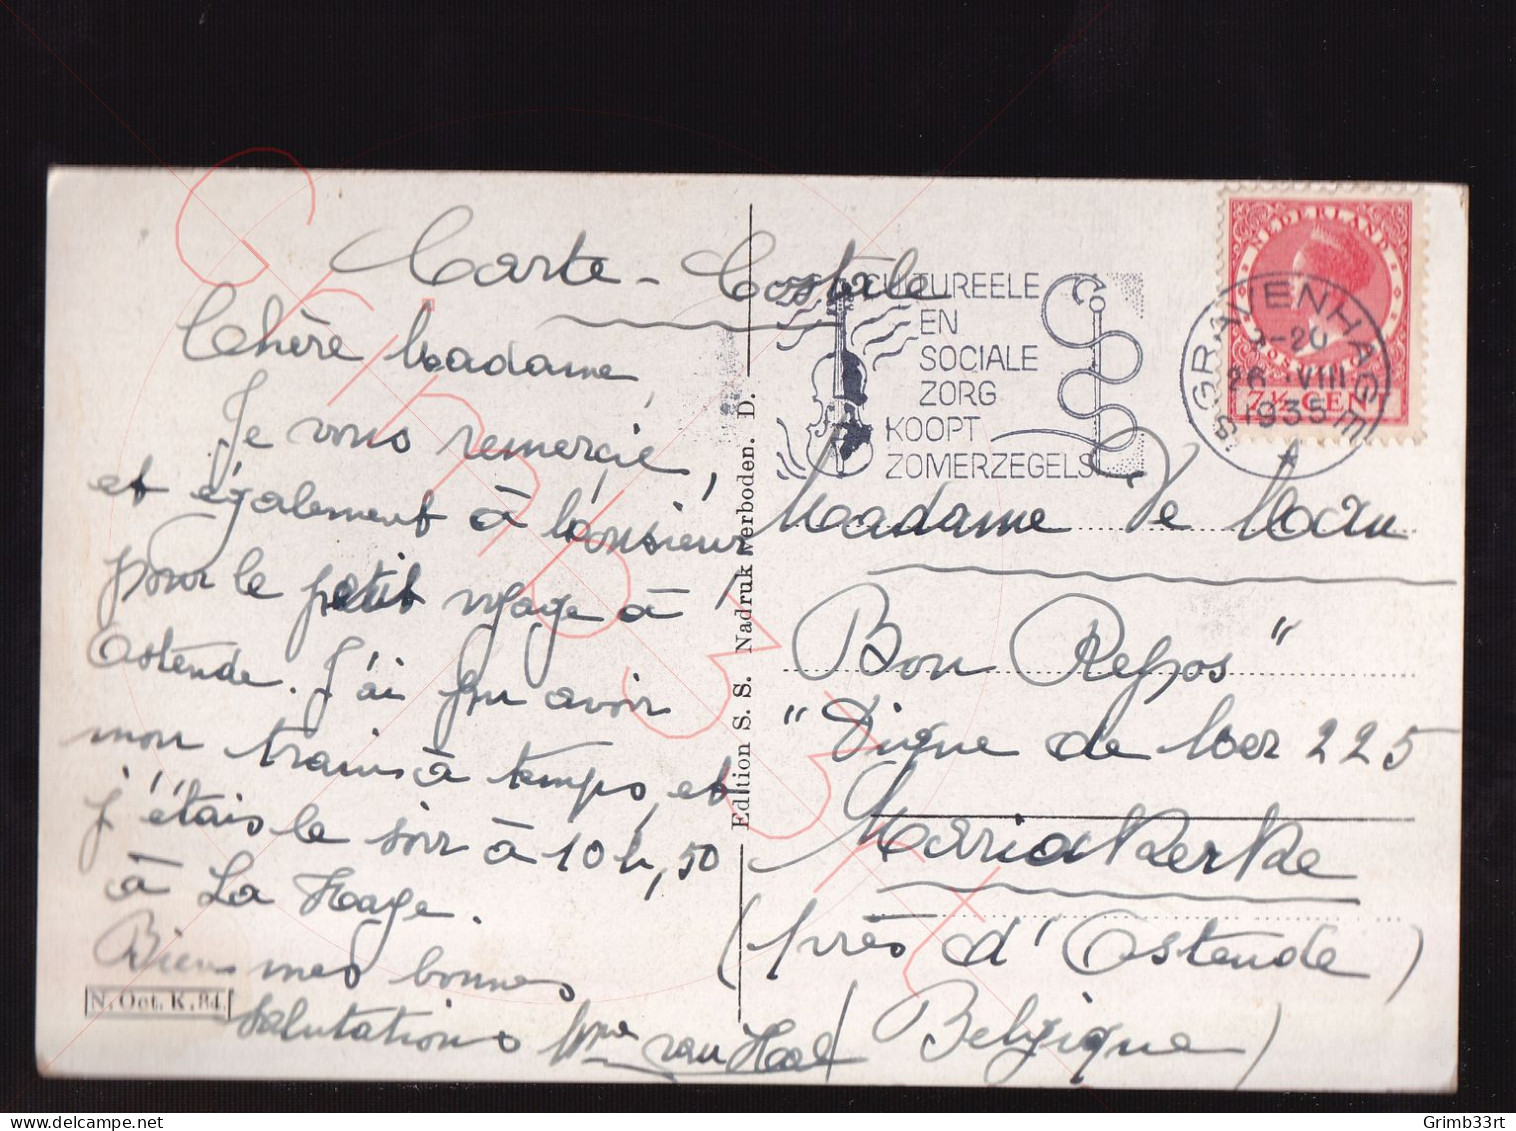 Carte-Postale
Chère Madame,
Je vous remercie,
et également à Monsieur
pour le petit voyage à
Ostende. J'ai pu avoir
mon train à temps, et
j'étais le soir à 10h,50
à La Haye.
Bien mes bonnes
salutations Mme van Hal
N. Oct. K. 84.
Edition S. S. Nadruk verboden. D.
CULTUREELE
EN
SOCIALE
ZORG
KOOPT
ZOMERZEGELS
NEDERLAND
7½ CENT
'S GRAVENHAGE
-20
26 VIII
1935
Madame De Man
Bon Repos"
"Digue de Mer 225
Mariakerke
(près d'Ostende)
(Belgique)
Grimb33rt
Grimb33rt